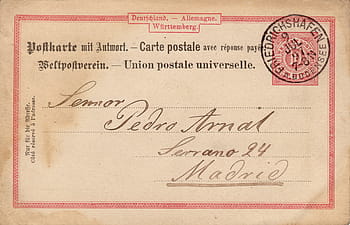 Deutschland. — Allemagne.
Württemberg.
Postkarte mit Antwort. — Carte postale avec réponse payé
Weltpostverein. — Union postale universelle.
FRIEDRICHSHAFEN
9
JUL
Sennor
Pedro Arnát
Serrano 24
Madrid
Nur für die Adresse.
Côté réservé à l'adresse.